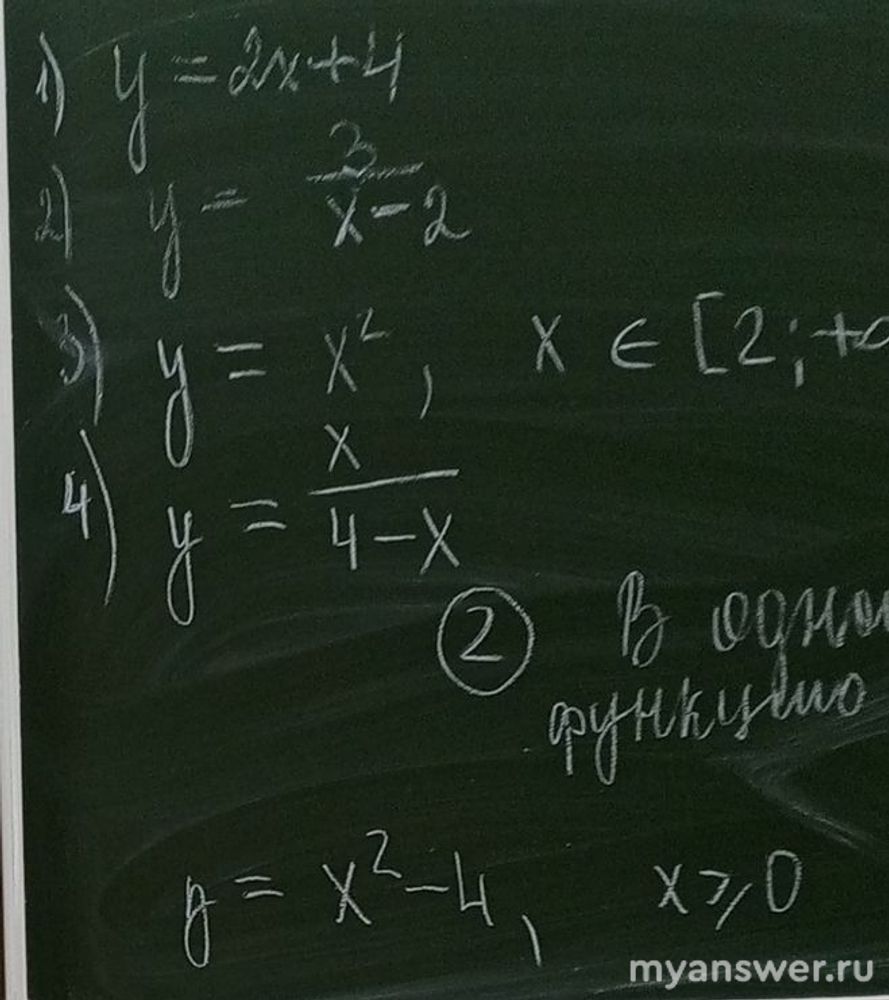 1) y = 2x + 4
2) y = 3/(x - 2)
3) y = x², x ∈ [2; +
4) y = x/(4 - x)
② В одно
функцию
y = x² - 4, x ⩾ 0
myanswer.ru